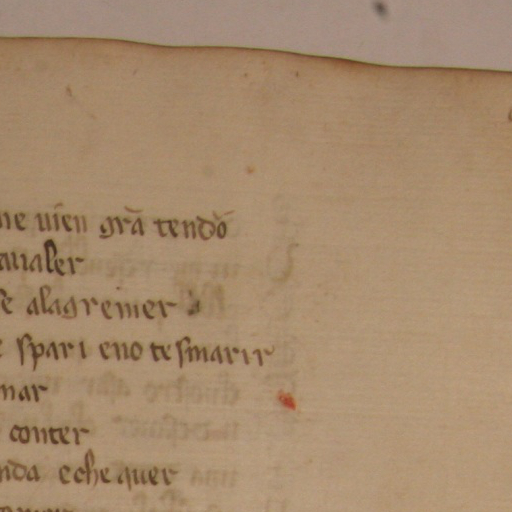 ne uien grā tendō
aualer
se alagremer
e spari eno te smarir
nar
conter
nda eche quer